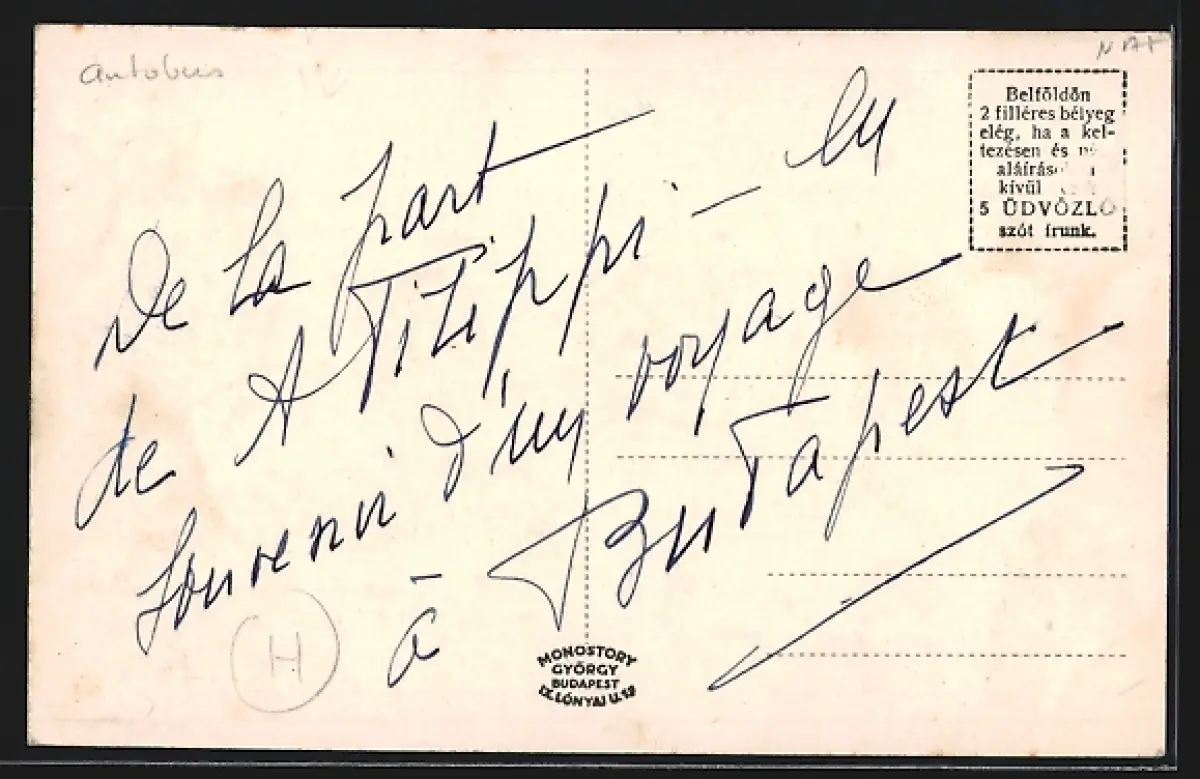 Autobus
Belföldön
2 filléres bélyeg
elég, ha a kel-
tezésen és
aláírás
kívül
5 ÜDVÖZLŐ
szót írunk.
De la part
de A Filippi - en
souvenir d'un voyage
à Budapest
H
MONOSTORY
GYÖRGY
BUDAPEST
IX. LÓNYAI U.